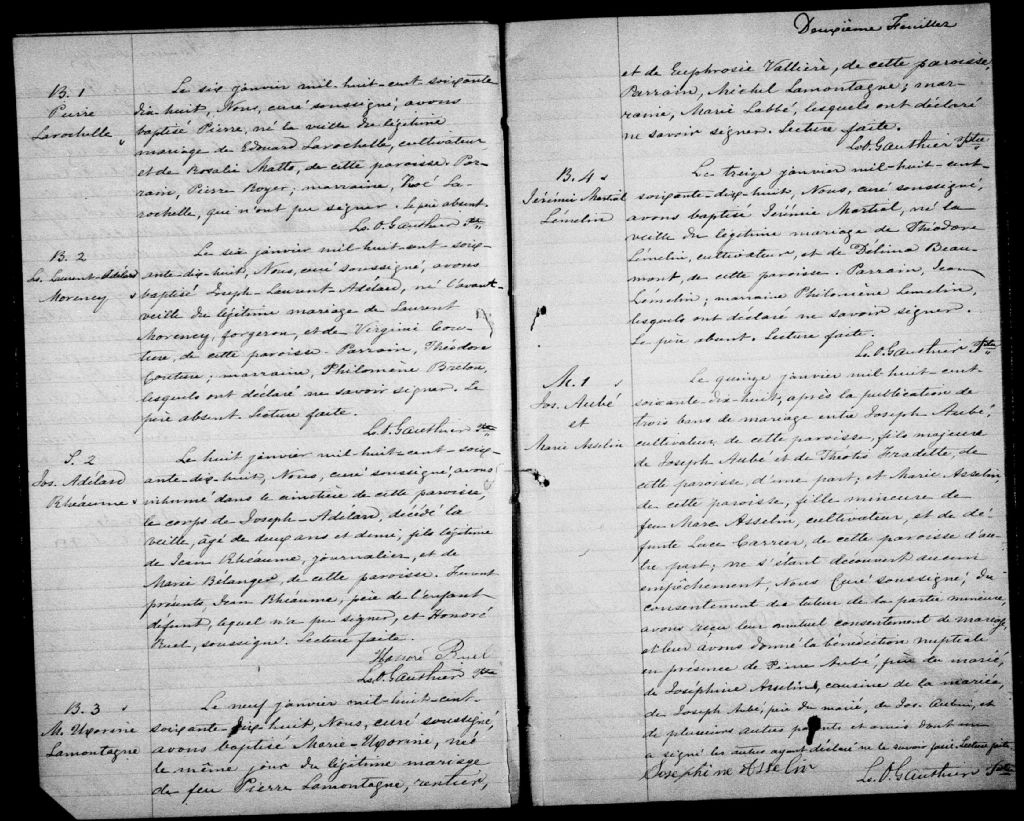 B. 1
Pierre
Larochelle
Le six janvier mil-huit-cent soixante
dix-huit, Nous, curé soussigné, avons
baptisé Pierre, né la veille du légitime
mariage de Edouard Larochelle, cultivateur
et de Rosalie Matte, de cette paroisse. Par-
rain, Pierre Boyer; marraine, Zoé La-
rochelle, qui n'ont pu signer. le père absent.
Ls. O. Gauthier Ptre
B. 2
Js. Laurent-Adélard
Morency
Le six janvier mil-huit-cent soix-
ante-dix-huit, Nous, curé soussigné, avons
baptisé Joseph-Laurent-Adélard, né l'avant-
veille du légitime mariage de Laurent
Morency, forgeron, et de Virginie Cou-
ture, de cette paroisse. Parrain, Théodore
Couture; marraine, Philomène Breton,
lesquels ont déclaré ne savoir signer. Le
père absent. Lecture faite.
Ls. O. Gauthier Ptre
S. 2
Jos. Adélard
Rhéaume
Le huit janvier mil-huit-cent-soix-
ante-dix-huit, Nous, curé soussigné, avons
inhumé dans le cimetière de cette paroisse,
le corps de Joseph-Adélard, décédé la
veille, âgé de deux ans et demi, fils légitime
de Jean Rhéaume, journalier, et de
Marie Bélanger, de cette paroisse. Furent
présents, Jean Rhéaume, père de l'enfant
défunt, lequel n'a pu signer, et Honoré
Ruel, soussigné. Lecture faite.
Honoré Ruel
Ls. O. Gauthier Ptre
B. 3
M. Uxorine
Lamontagne
Le neuf janvier mil-huit-cent-
soixante-dix-huit, Nous, curé soussigné,
avons baptisé Marie-Uxorine, née
le même jour du légitime mariage
de feu Pierre Lamontagne, rentier,
Deuxième Feuillet
et de Euphrosie Vallière, de cette paroisse,
Parrain, Michel Lamontagne; mar-
raine, Marie Labbé, lesquels ont déclaré
ne savoir signer. Lecture faite.
Ls. O. Gauthier Ptre
B. 4
Jérémie Martial
Lémelin
Le treize janvier mil-huit-cent-
soixante-dix-huit, Nous, curé soussigné,
avons baptisé Jérémie Martial, né la
veille du légitime mariage de Théodore
Lémelin, cultivateur, et de Délina Beau-
mont, de cette paroisse. Parrain, Jean
Lémelin; marraine Philomène Lemelin,
lesquels ont déclaré ne savoir signer.
Le père absent. Lecture faite.
Ls. O. Gauthier Ptre
M. 1
Jos. Aubé
et
Marie Asselin
Le quinze janvier mil-huit-cent-
soixante-dix-huit, après la publication de
trois bans de mariage entre Joseph Aubé,
cultivateur, de cette paroisse, fils majeur
de Joseph Aubé et de Théotis Fradette, de
cette paroisse, d'une part; et Marie Asselin,
de cette paroisse, fille mineure de
feu Marc Asselin, cultivateur, et de dé-
funte Luce Carrier, de cette paroisse d'au-
tre part; ne s'étant découvert aucun
empêchement, Nous Curé soussigné, du
consentement du tuteur de la partie mineure,
avons reçu leur mutuel consentement de mariage,
et leur avons donné la bénédiction nuptiale
en présence de Pierre Aubé, père du marié,
de Joséphine Asselin, cousine de la mariée,
de Joseph Aubé, père du marié, de Jos. Aubin, et
de plusieurs autres parents et amis dont un
a signé les autres ayant déclaré ne le savoir faire. Lecture faite.
Josephine Asselin
Ls. O. Gauthier Ptre